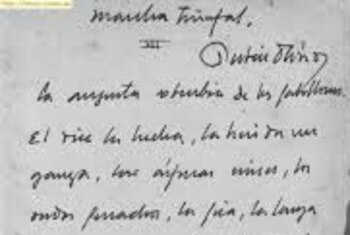 Marcha triunfal.
III
Rubén Darío
la augusta soberbia de los pabellones.
El dice la lucha, la herida ven
ganza, las ásperas crines, los
rudos penachos, la pica, la lanza